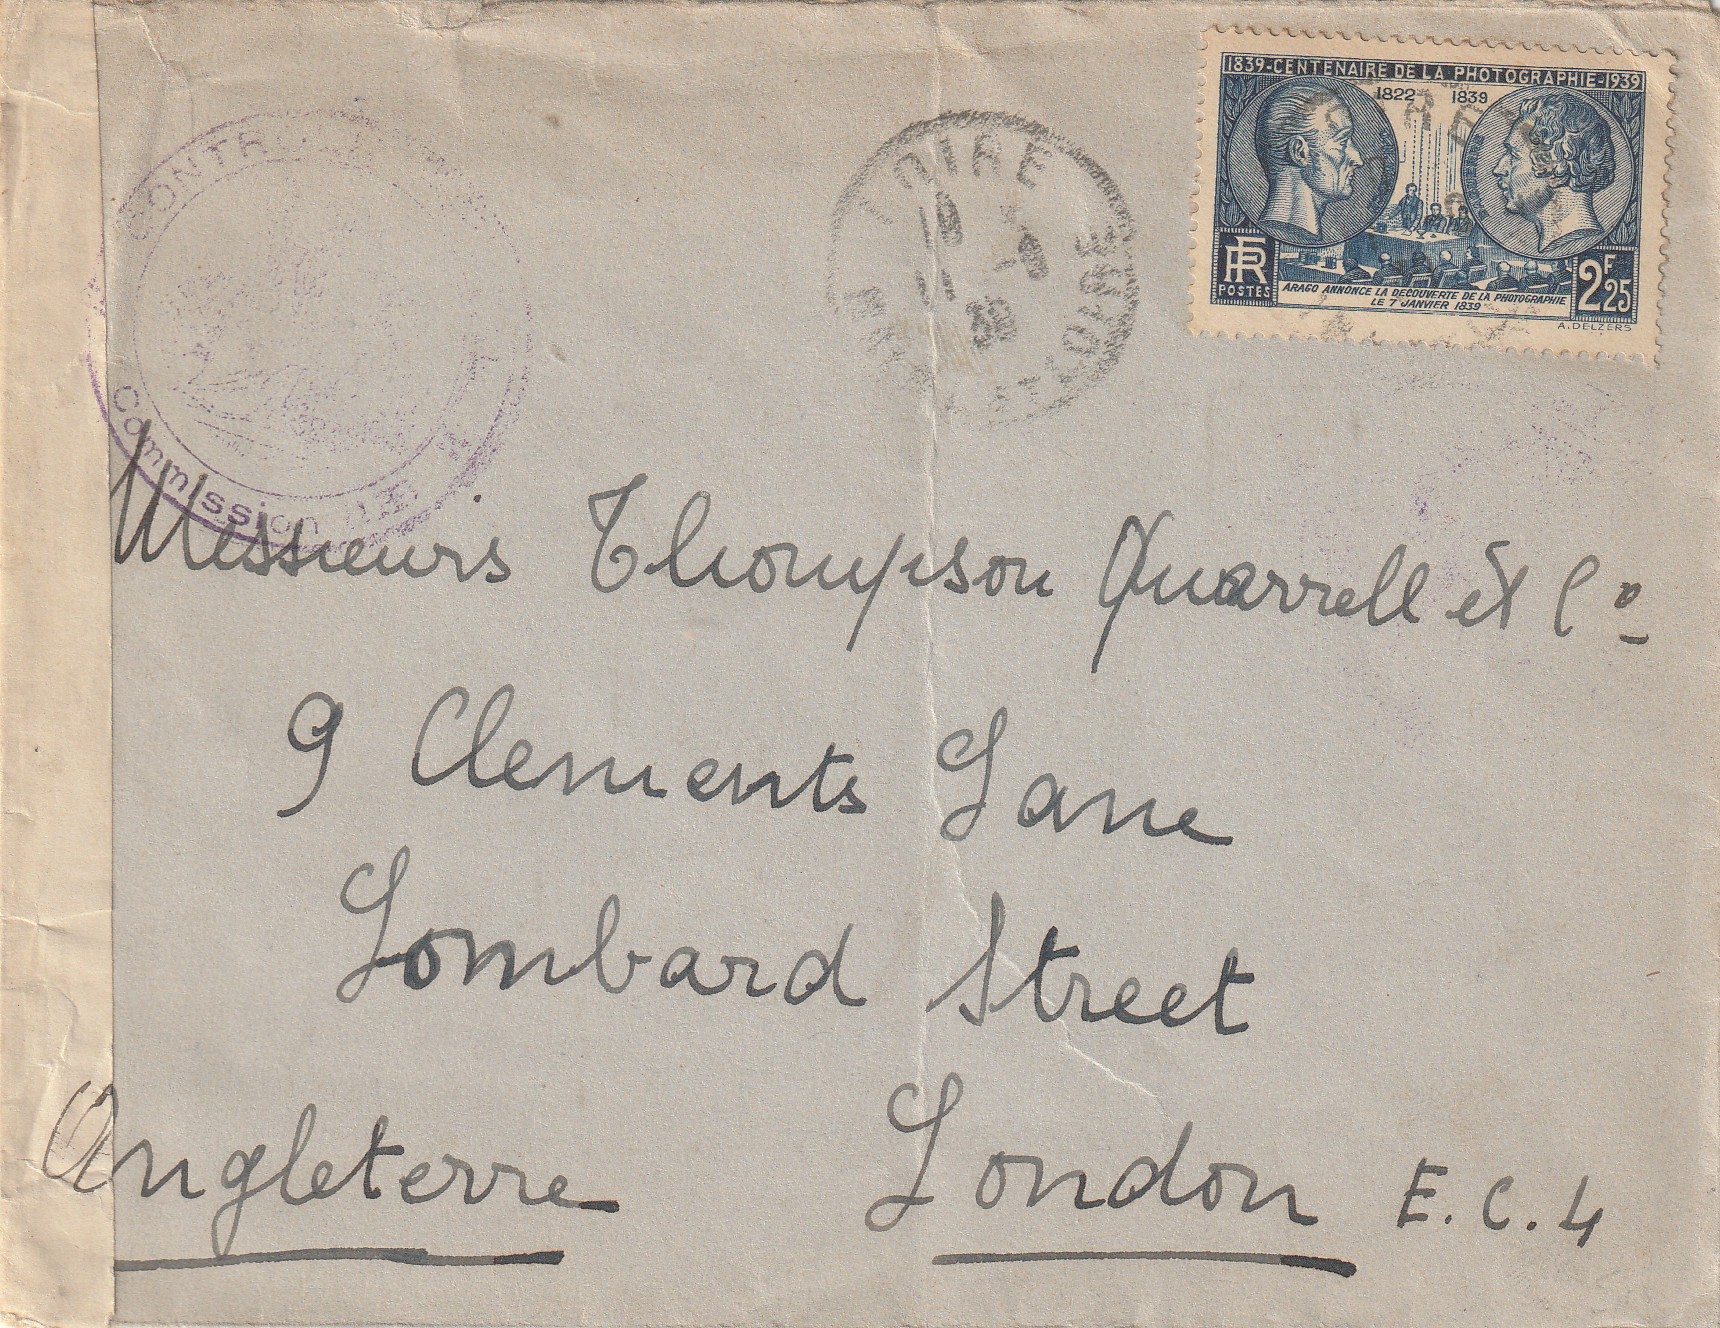 1839-CENTENAIRE DE LA PHOTOGRAPHIE-1939
1822 1839
RF
POSTES
ARAGO ANNONCE LA DECOUVERTE DE LA PHOTOGRAPHIE
LE 7 JANVIER 1839
2F25
A.DELZERS
LOIRE
Commission
Messieurs Thompson Quarrell et Co
9 Clements Lane
Lombard Street
Angleterre London E.C.4